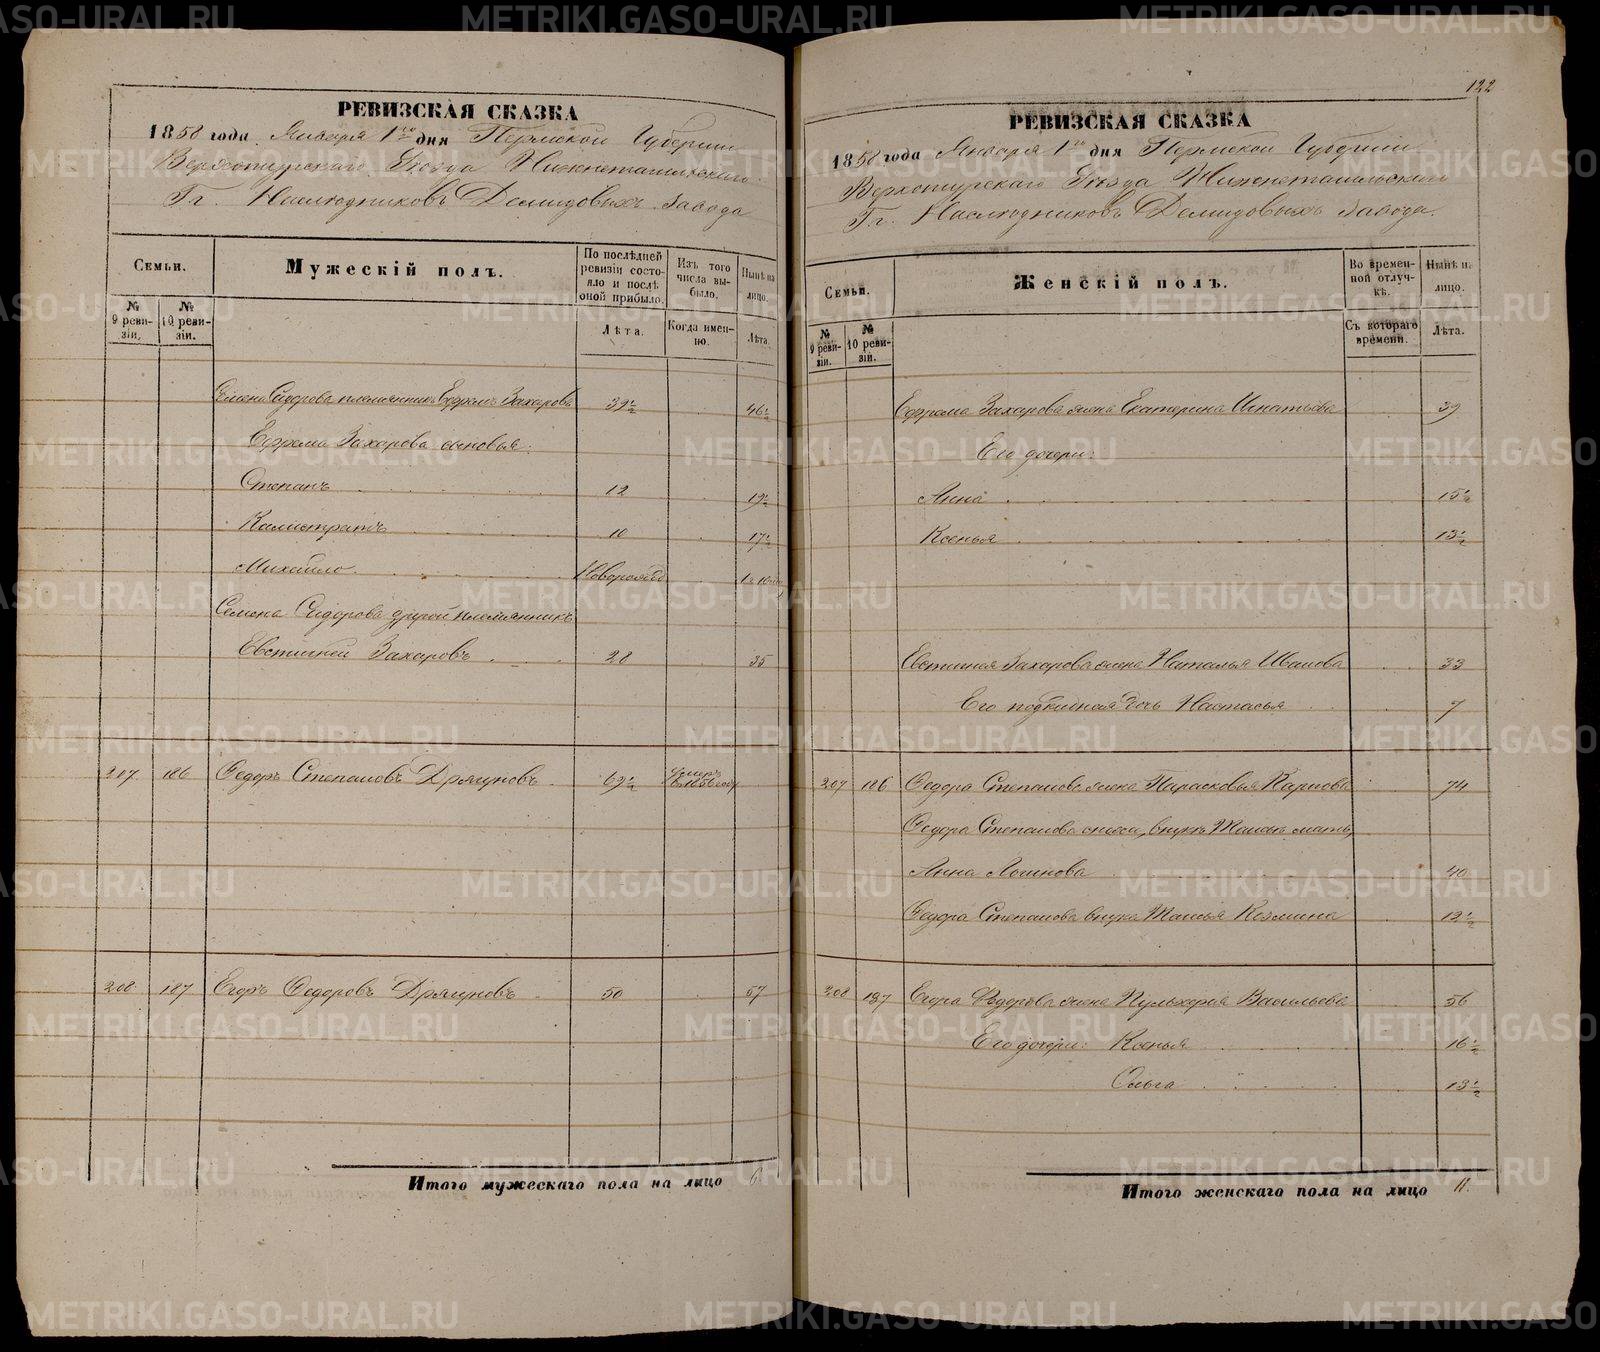 РЕВИЗСКАЯ СКАЗКА
1858 года Января 1го дня Пермской Губерніи
Верхотурскаго Уѣзда Нижнетагильскаго
Гг. Наслѣдниковъ Демидовыхъ Завода
Семьи.
№ 9 ревизіи.
№ 10 ревизіи.
Мужескій полъ.
По послѣдней
ревизіи состо-
яло и послѣ
оной прибыло.
Лѣта.
Изъ того
числа вы-
было.
Когда имен-
но.
Нынѣ на
лицо.
Лѣта.
Семена Сидорова племянникъ Ефремъ Захаровъ 39½ 46½
Ефрема Захарова сыновья:
Степанъ 12 19½
Калистратъ 10 17½
Михайло Новорожд
Семена Сидорова другой племянникъ
Евстигней Захаровъ 28 35
207 186 Федоръ Степановъ Дрягуновъ 69½ Умеръ въ 1856 году
208 187 Егоръ Федоровъ Дрягуновъ 50 57
Итого мужескаго пола на лицо 6
122
РЕВИЗСКАЯ СКАЗКА
1858 года Января 1го дня Пермской Губерніи
Верхотурскаго Уѣзда Нижнетагильскаго
Гг. Наслѣдниковъ Демидовыхъ Завода.
Семьи.
№ 9 ревизіи.
№ 10 ревизіи.
Женскій полъ.
Во времен-
ной отлуч-
кѣ.
Съ котораго
времени.
Нынѣ на
лицо.
Лѣта.
Ефрема Захарова жена Екатерина Игнатьева 39
Его дочери:
Анна 15½
Ксенья 13½
Евстигнея Захарова жена Наталья Иванова 33
Его подкидная дочь Настасья 7
207 186 Федора Степанова жена Парасковья Карпова 74
Федора Степанова сноха, внукъ Таисьи мать,
Анна Логинова 40
Федора Степанова внука Таисья Козмина 12½
208 187 Егора Федорова жена Пульхерья Васильева 56
Его дочери: Ксенья 16½
Ольга 13½
Итого женскаго пола на лицо 11.
METRIKI.GASO-URAL.RU